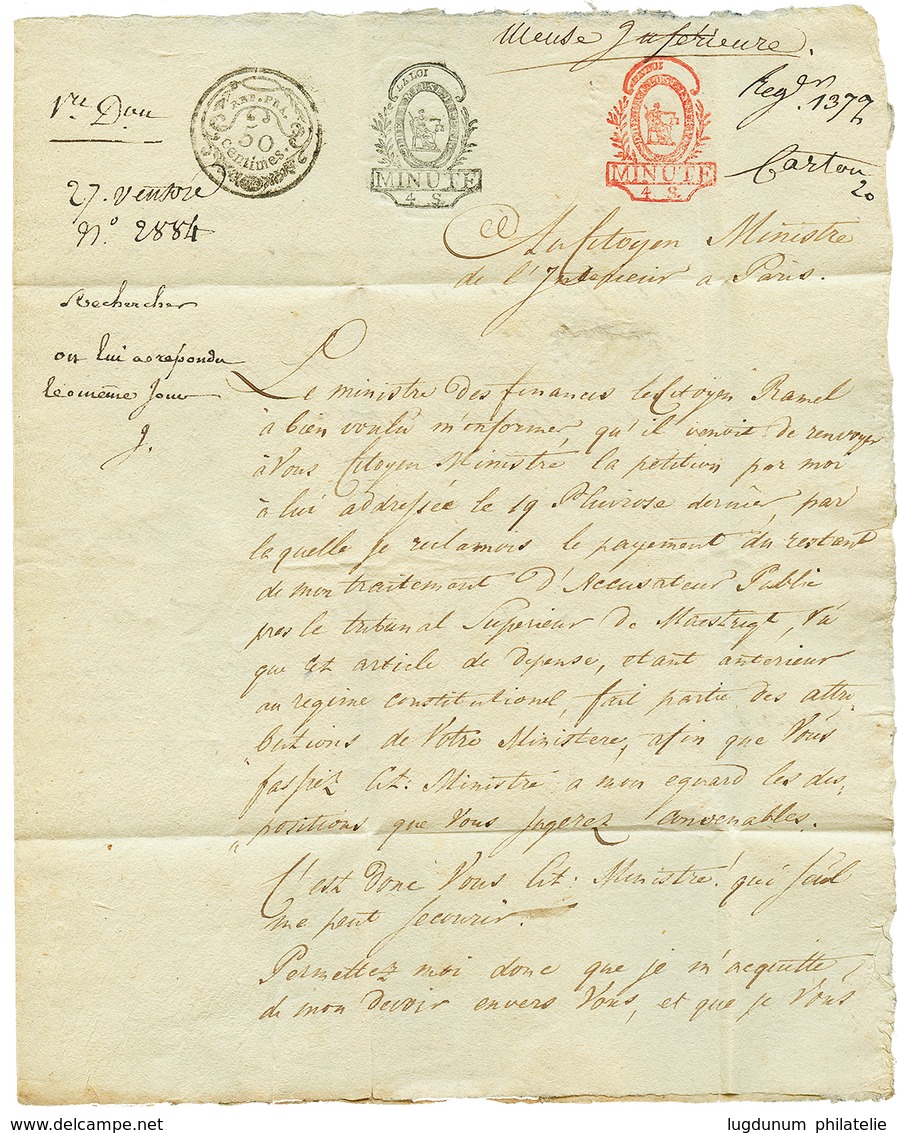 Meuse Inférieure.
Vre Don
REP. FRA.
50
centimes.
LA LOI
MINUTE
4 S.
LA LOI
MINUTE
4 S.
Regr. 1377
Carton
20
27. Ventose
N.° 2884
Au Citoyen Ministre
de l'Interieur a Paris.
Rechercher
on lui a repondu
le meme Jour
J.
Le ministre des finances le Citoyen Ramel
à bien voulu m'informer, qu'il venoit de renvoyer
à Vous Citoyen Ministre la petition par moi
à lui addressée le 19 Pluviose dernier, par
laquelle je reclamois le payement du restant
de mon traitement d'Accusateur Public
pres le tribunal Superieur de Maestrigt, Vû
que cet article de depense, etant anterieur
au regime constitutionel, fait partie des attri-
butions de Votre Ministere, afin que Vous
fassiez Cit: Ministre a mon eguard les dis-
positions que Vous jugerez convenables.
C'est donc Vous Cit: Ministre! qui seul
me peut secourir.
Permettez moi donc que je m'acquitte
de mon devoir envers Vous, et que je Vous
www.delcampe.net
lugdunum philatelie